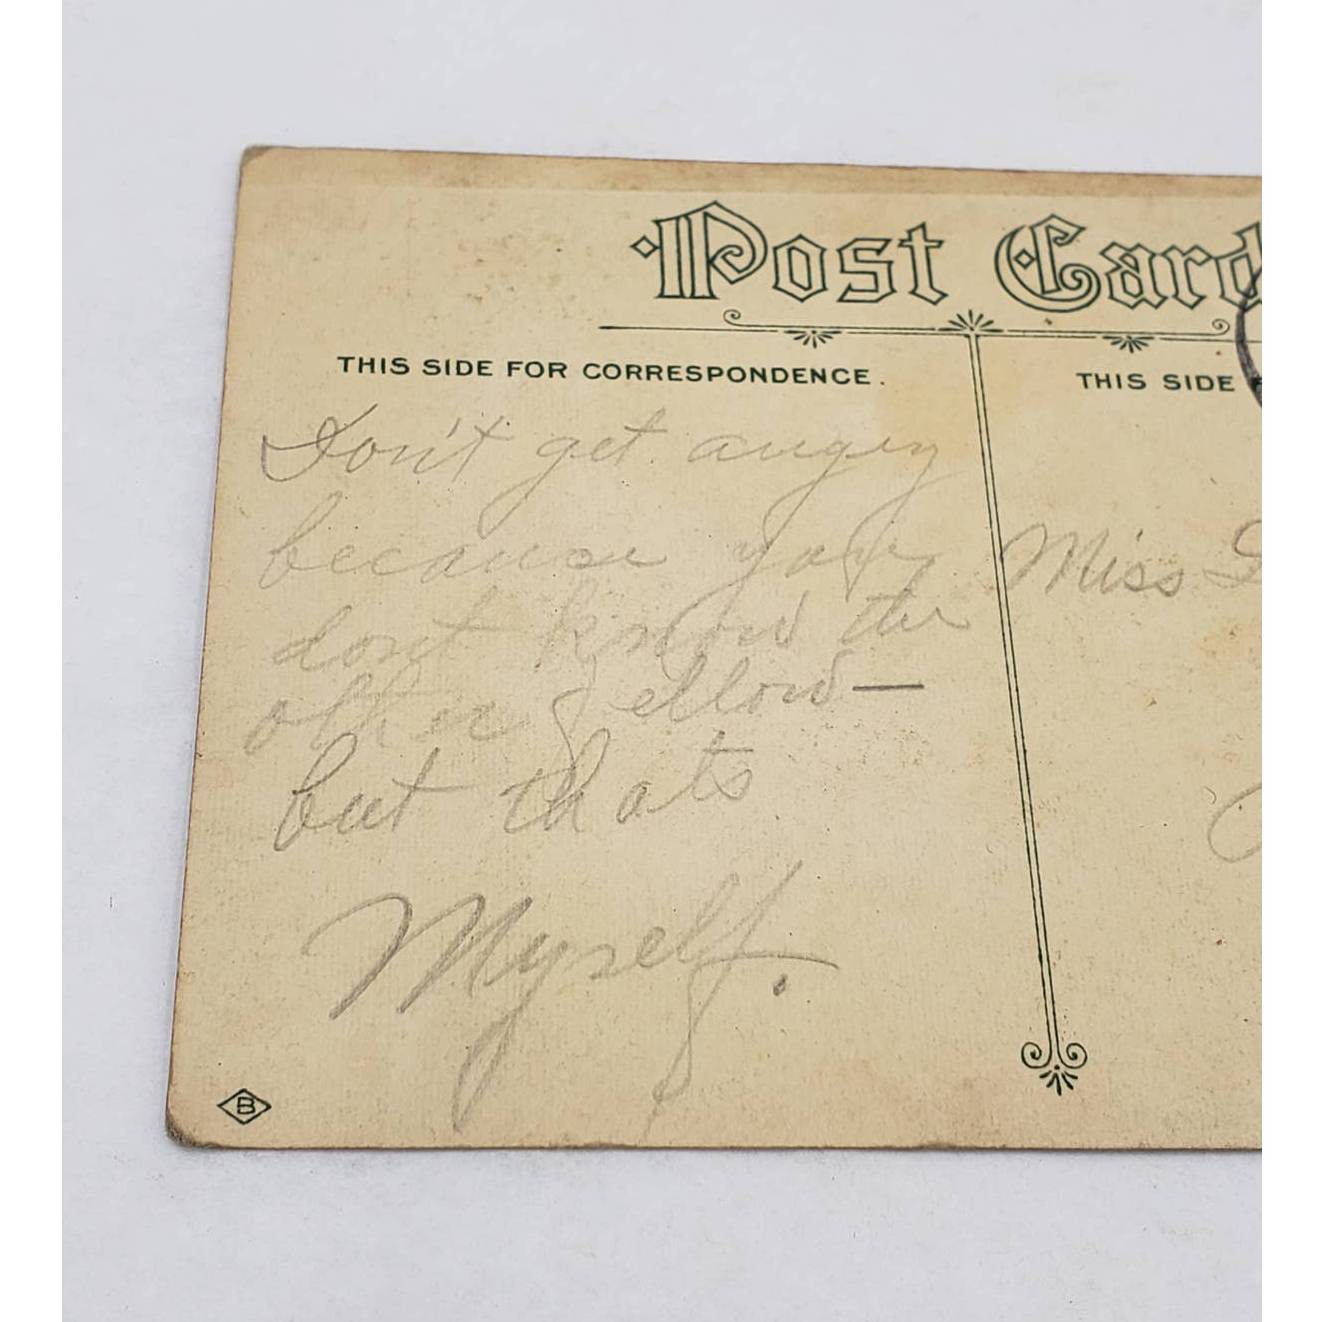 Post Card
THIS SIDE FOR CORRESPONDENCE.
THIS SIDE
Don't get angry
because you
don't know the
other fellow—
but thats
Myself.
Miss
B